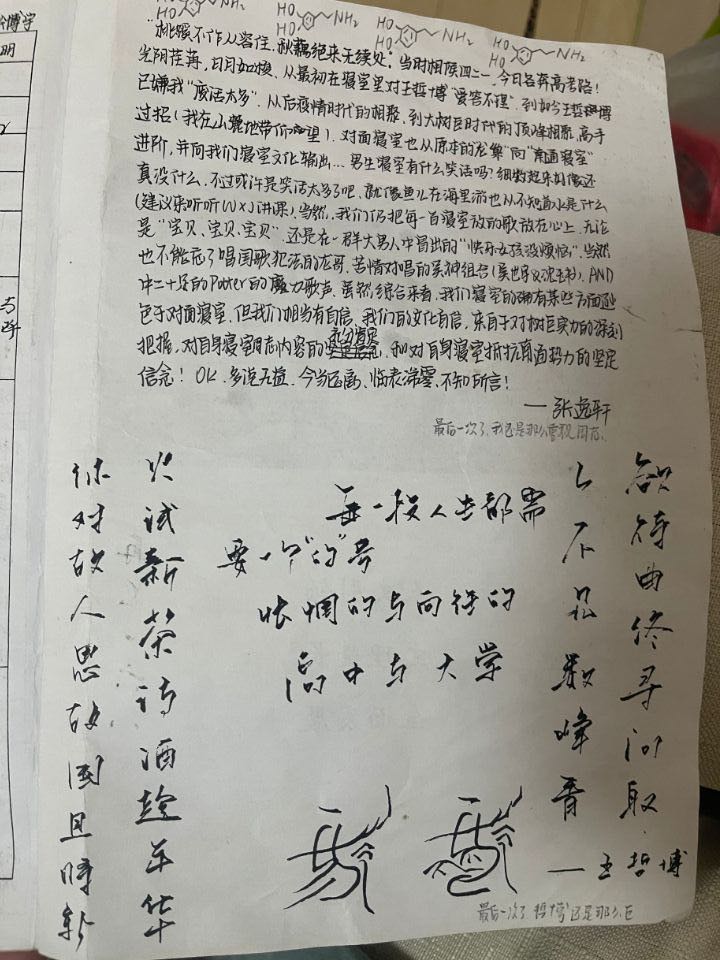 HO HO NH₂ HO HO NH₂ HO HO NH₂ HO HO NH₂
"桃蹊不作从容住,秋藕绝来无续处",当时相候四二一,今日各奔高考路!
光阴荏苒,日月如梭,从最初在寝室里对王哲博"爱答不理",到如今王哲博
已嫌我"废话太多",从后疫情时代的相聚,到大树巨时代的顶峰相聚,高手
过招(我在山麓地带仰望),对面寝室也从原本的"向"南通寝室"
进阶,并向我们寝室文化输出…男生寝室有什么笑话吗?细数起来好像还
真没什么,不过或许是笑话太多了吧,就像鱼儿在海里游也从不知道水是什么
(建议来听听WXJ讲课),当然,我们仍把每一首寝室放的歌放在心上,无论
是"宝贝、宝贝、宝贝",还是在一群大男人中冒出的"快乐女孩没烦恼",当然
也不能忘了唱国歌犯法的龙哥,苦情对唱的组合,AND
中二十足的Potter的魔力歌声,虽然综合来看,我们寝室的确有某些方面逊
色于对面寝室,但我们相当有自信,我们的文化自信,来自于对树巨实力的深刻
把握,对自身寝室内容的,和对自身寝室抵抗南通势力的坚定
信念!OK,多说无益,今当远离,临表涕零,不知所言!
——张逸轩
最后一次了,我还是那么重视周
欲待曲终寻问取
人不见数峰青
——王哲博
每一段人生都需
要一个"的"号
怅惘的与向往的
高中与大学
休对故人思故国且将新
火试新茶诗酒趁年华
最后一次了,哲博还是那么巨